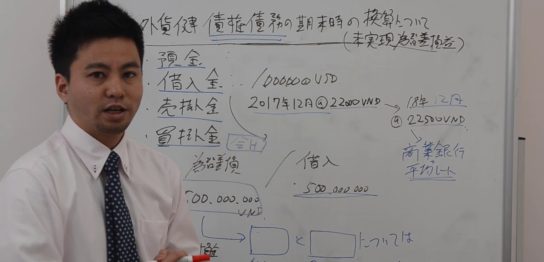 外貨建 債権債務の期末時の換算について
(未実現為替差損益)
・預金
・借入金 1000000USD
2017年12月@22000VND → 18年12月
・売掛金 @22500VND
・買掛金 商業銀行
平均レート
合計
為替差損 借入
500.000.000 500.000.000
VND
→ と については